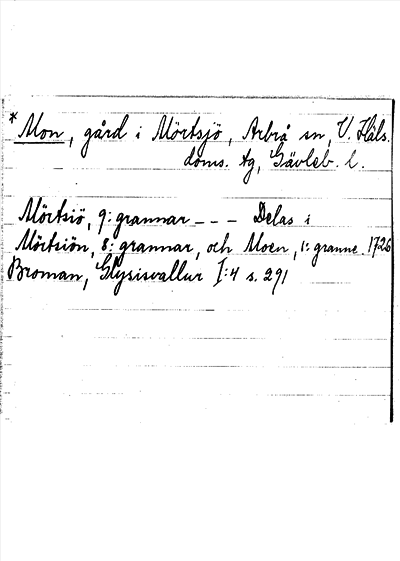 * Mon, gård i Mörtsjö, Arbrå sn, V. Häls.
doms. tg, Gävleb. l.
Mörtsiö, 9: grannar - - - Delas i
Mörtsiön, 8: grannar, och Moen, 1: granne. 1726
Broman, Glysisvallur I:4 s. 291